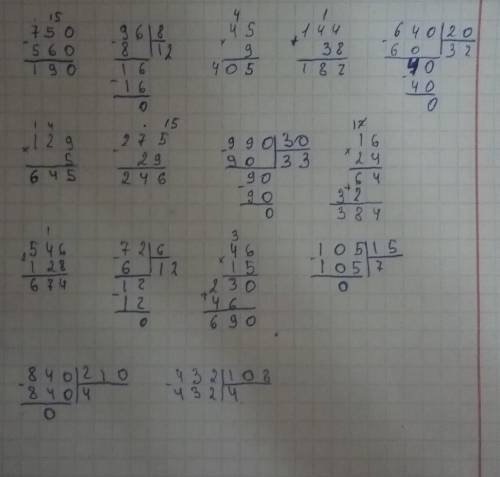 15
-750
560
190
-96|8
8 |12
16
-16
0
4
×45
9
405
1
+144
38
182
-640|20
60 |32
40
-40
0
1 4
×129
5
645
15
-275
29
246
-990|30
90 |33
90
-90
0
17
×16
24
64
+32
384
1
+546
128
674
-72|6
6 |12
12
-12
0
3
×46
15
230
+46
690
-105|15
105|7
0
-840|210
840|4
0
-432|108
432|4